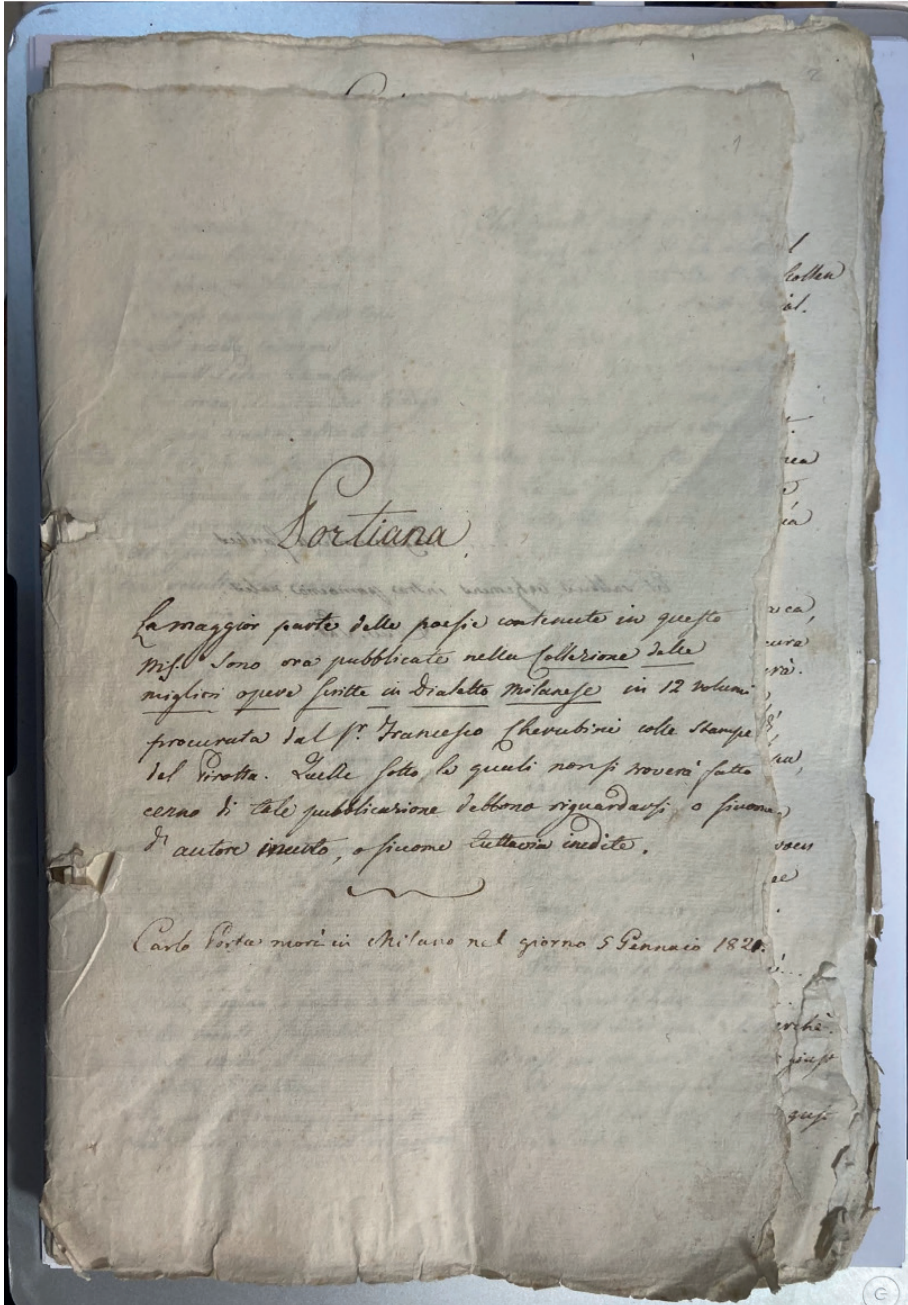 2
1
Portiana
La maggior parte delle poesie contenute in questo
Ms. sono ora pubblicate nella Collezione delle
migliori opere scritte in Dialetto Milanese in 12 volumi
procurata dal Sr. Francesco Cherubini colle stampe
del Pirotta. Quelle sotto le quali non si troverà fatto
cenno di tale pubblicazione debbono riguardarsi, o siccome
d'autore incerto, o siccome tuttavia inedite.
Carlo Porta morì in Milano nel giorno 5 Gennaio 1821.